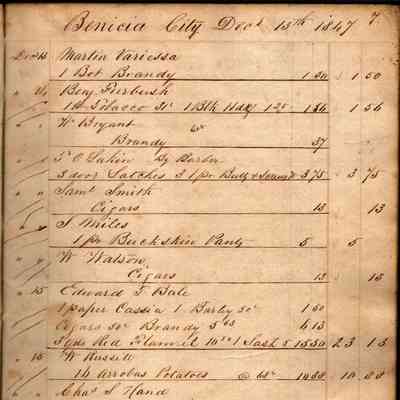 Benicia City Decr 13th 1847 7
Dec 13 Martin Variessa
1 Bot Brandy 1 50 1 50
" 14 Benj
Tobacco 31c 1 Blk Hdkf 1 25 1 56 1 56
" " W Bryant
Brandy 37
" " T O Larkin By Baron
3 door Latches 3 1 pr Butts & Screws 3 75 3 75
" " Saml Smith
Cigars 13 13
" " S Miles
1 pr Buckskin Pants 5 5
" " W Watson
Cigars 13 13
" 15 Edward T Bale
1 paper Cassia 1 Barley 50c 1 50
Cigars 50c Brandy 3 63 4 13
Red Flannel 1 Sash 5 15 50 23 13
" 15 W Russell
14 arrobas Potatoes @ 10 88
" " Chas S Hand